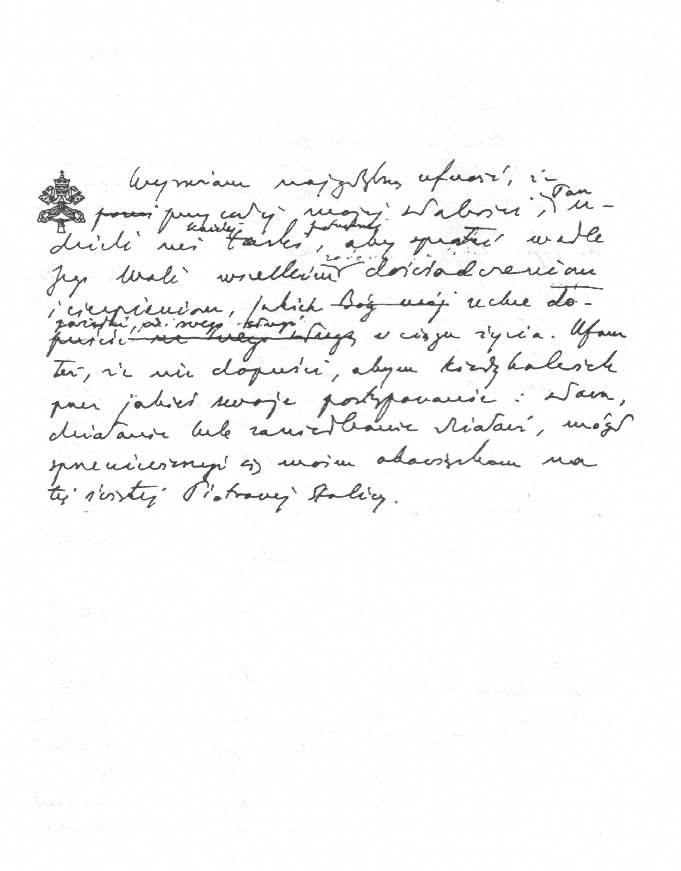 Wyrażam najgłębszą ufność, że
pomoi przy całej mojej słabości, Pan u-
dzieli mi każdej łaski potrzebnej, aby sprostać wedle
Jego Woli wszelkim zadaniom doświadczeniom
i cierpieniom, jakich Bóg mój zechce do-
puścić na swego sługę zażądać od swego sługi w ciągu życia. Ufam
też, że nie dopuści, abym kiedykolwiek
przez jakieś swoje postępowanie: słowa,
działanie lub zaniedbanie działań, mógł
sprzeniewierzyć się moim obowiązkom na
tej świętej Piotrowej Stolicy.